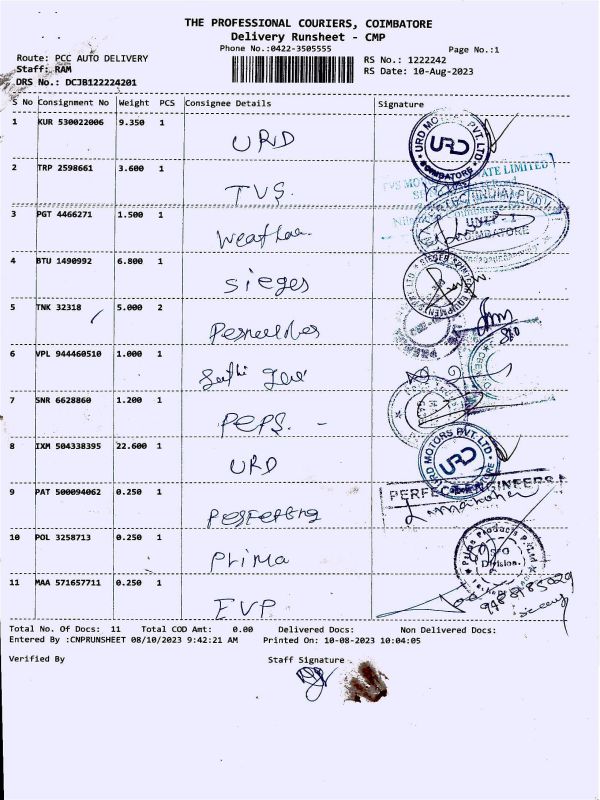 THE PROFESSIONAL COURIERS, COIMBATORE
Delivery Runsheet - CMP
Phone No.:0422-3505555
Page No.:1
Route: PCC AUTO DELIVERY
RS No.: 1222242
Staff: RAM
RS Date: 10-Aug-2023
DRS No.: DCJB122224201
S No Consignment No Weight PCS Consignee Details Signature
1 KUR 530022006 9.350 1 URD
URD MOTORS PVT.LTD COIMBATORE URD
2 TRP 2598661 3.600 1 TVS.
3 PGT 4466271 1.500 1
4 BTU 1490992 6.800 1 sieges
5 TNK 32318 5.000 2
6 VPL 944460510 1.000 1
7 SNR 6628860 1.200 1 PEPS. -
8 IXM 504338395 22.600 1 URD
URD MOTORS PVT.LTD URD
9 PAT 500094062 0.250 1
10 POL 3258713 0.250 1 Prima
Prima Products P Ltd SPO Division
11 MAA 571657711 0.250 1 EVP
Total No. Of Docs: 11 Total COD Amt: 0.00 Delivered Docs: Non Delivered Docs:
Entered By :CNPRUNSHEET 08/10/2023 9:42:21 AM Printed On: 10-08-2023 10:04:05
Verified By Staff Signature